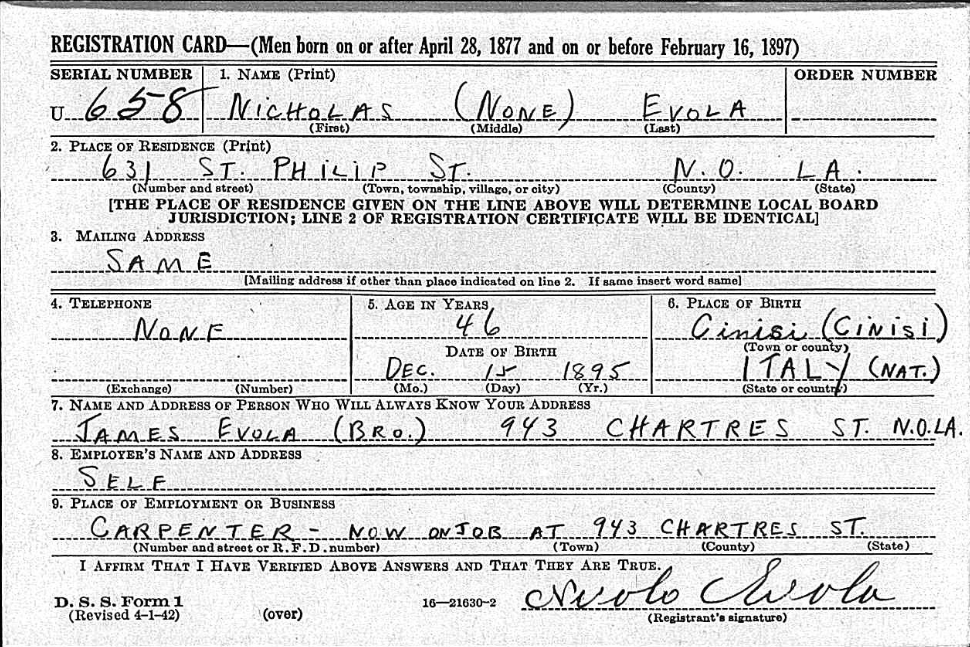 REGISTRATION CARD—(Men born on or after April 28, 1877 and on or before February 16, 1897)
SERIAL NUMBER 1. NAME (Print) ORDER NUMBER
U 658 NICHOLAS (NONE) EVOLA
(First) (Middle) (Last)
2. PLACE OF RESIDENCE (Print)
631 ST. PHILIP ST. N.O. LA.
(Number and street) (Town, township, village, or city) (County) (State)
[THE PLACE OF RESIDENCE GIVEN ON THE LINE ABOVE WILL DETERMINE LOCAL BOARD
JURISDICTION; LINE 2 OF REGISTRATION CERTIFICATE WILL BE IDENTICAL]
3. MAILING ADDRESS
SAME
[Mailing address if other than place indicated on line 2. If same insert word same]
4. TELEPHONE 5. AGE IN YEARS 6. PLACE OF BIRTH
NONE 46 Cinisi (CINISI)
DATE OF BIRTH (Town or county)
DEC. 15 1895 ITALY (NAT.)
(Exchange) (Number) (Mo.) (Day) (Yr.) (State or country)
7. NAME AND ADDRESS OF PERSON WHO WILL ALWAYS KNOW YOUR ADDRESS
JAMES EVOLA (BRO.) 943 CHARTRES ST. N.O.LA.
8. EMPLOYER'S NAME AND ADDRESS
SELF
9. PLACE OF EMPLOYMENT OR BUSINESS
CARPENTER - NOW ON JOB AT 943 CHARTRES ST.
(Number and street or R.F.D. number) (Town) (County) (State)
I AFFIRM THAT I HAVE VERIFIED ABOVE ANSWERS AND THAT THEY ARE TRUE.
D. S. S. Form 1
(Revised 4-1-42) (over) 16—21630-2 Nicolo Evola
(Registrant's signature)